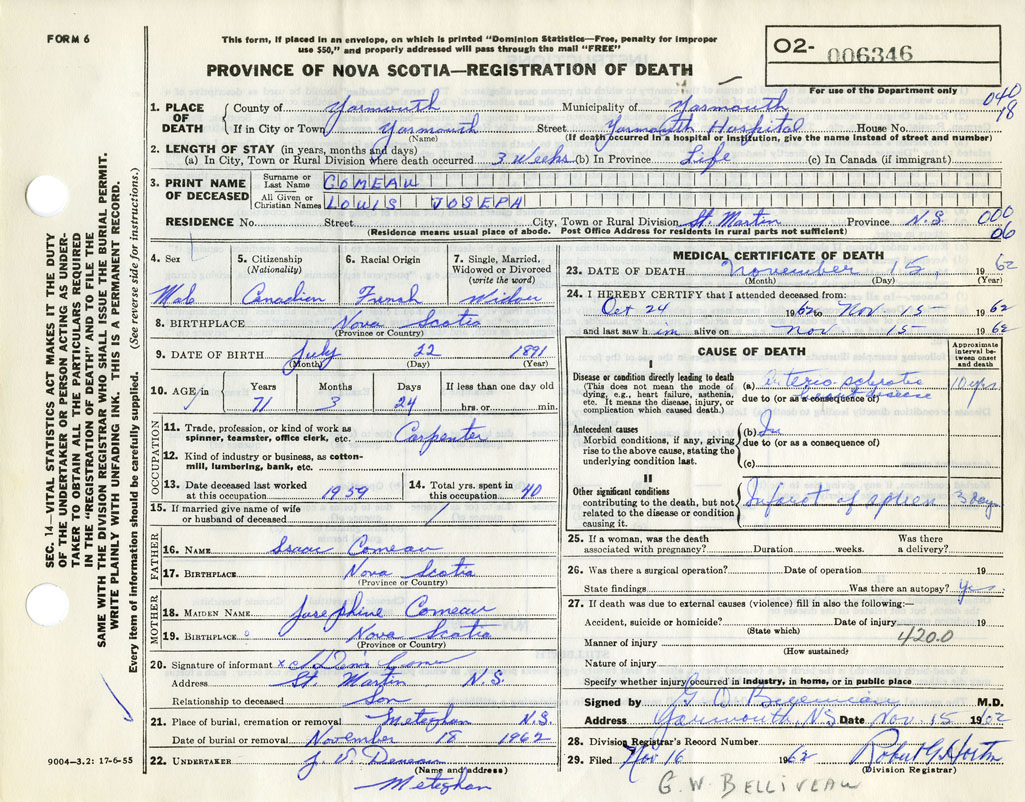 FORM 6
This form, if placed in an envelope, on which is printed "Dominion Statistics—Free, penalty for improper
use $50," and properly addressed will pass through the mail "FREE"
PROVINCE OF NOVA SCOTIA—REGISTRATION OF DEATH
O2- 006346
For use of the Department only
040
98
1. PLACE OF DEATH
County of Yarmouth Municipality of Yarmouth
If in City or Town Yarmouth Street Yarmouth Hospital House No.
(Name) (If death occurred in a hospital or institution, give the name instead of street and number)
2. LENGTH OF STAY (in years, months and days)
(a) In City, Town or Rural Division where death occurred 3 weeks (b) In Province Life (c) In Canada (if immigrant)
3. PRINT NAME OF DECEASED
Surname or Last Name COMEAU
All Given or Christian Names LOUIS JOSEPH
RESIDENCE No. Street City, Town or Rural Division St. Martin Province N.S.
(Residence means usual place of abode. Post Office Address for residents in rural parts not sufficient)
000
06
4. Sex Male
5. Citizenship (Nationality) Canadian
6. Racial Origin French
7. Single, Married, Widowed or Divorced (write the word) Widow
8. BIRTHPLACE Nova Scotia
(Province or Country)
9. DATE OF BIRTH July 22 1891
(Month) (Day) (Year)
10. AGE in Years Months Days If less than one day old
71 3 24 hrs. or min.
OCCUPATION
11. Trade, profession, or kind of work as spinner, teamster, office clerk, etc. Carpenter
12. Kind of industry or business, as cotton-mill, lumbering, bank, etc.
13. Date deceased last worked at this occupation 1959
14. Total yrs. spent in this occupation 40
15. If married give name of wife or husband of deceased
FATHER
16. NAME Isaac Comeau
17. BIRTHPLACE Nova Scotia
(Province or Country)
MOTHER
18. MAIDEN NAME Josephine Comeau
19. BIRTHPLACE Nova Scotia
(Province or Country)
20. Signature of informant x Denis Comeau
Address St. Martin N.S.
Relationship to deceased Son
21. Place of burial, cremation or removal Meteghan N.S.
Date of burial or removal November 18 1962
22. UNDERTAKER
(Name and address)
Meteghan
9004—3.2: 17-6-55
MEDICAL CERTIFICATE OF DEATH
23. DATE OF DEATH November 15, 1962
(Month) (Day) (Year)
24. I HEREBY CERTIFY that I attended deceased from:
Oct 24 1962 to Nov. 15 1962
and last saw him alive on Nov. 15 1962
CAUSE OF DEATH
Approximate interval between onset and death
I
Disease or condition directly leading to death
(This does not mean the mode of dying, e.g., heart failure, asthenia, etc. It means the disease, injury, or complication which caused death.)
(a) arterio sclerotic heart disease 10 yrs.
due to (or as a consequence of)
Antecedent causes
Morbid conditions, if any, giving rise to the above cause, stating the underlying condition last.
(b)
due to (or as a consequence of)
(c)
II
Other significant conditions
contributing to the death, but not related to the disease or condition causing it.
Infarct of spleen 3 days
25. If a woman, was the death associated with pregnancy? Duration weeks. Was there a delivery?
26. Was there a surgical operation? Date of operation 19
State findings Was there an autopsy? Yes
27. If death was due to external causes (violence) fill in also the following:—
Accident, suicide or homicide? Date of injury 19
(State which)
420.0
Manner of injury
(How sustained)
Nature of injury
Specify whether injury occurred in industry, in home, or in public place
Signed by M.D.
Address Yarmouth, NS Date Nov. 15 1962
28. Division Registrar's Record Number
29. Filed Nov 16 1962 Robert G. Horton
(Division Registrar)
G. W. BELLIVEAU
SEC. 14—VITAL STATISTICS ACT MAKES IT THE DUTY
OF THE UNDERTAKER OR PERSON ACTING AS UNDER-
TAKER TO OBTAIN ALL THE PARTICULARS REQUIRED
IN THE "REGISTRATION OF DEATH" AND TO FILE THE
SAME WITH THE DIVISION REGISTRAR WHO SHALL ISSUE THE BURIAL PERMIT.
WRITE PLAINLY WITH UNFADING INK. THIS IS A PERMANENT RECORD.
Every item of information should be carefully supplied. (See reverse side for instructions.)